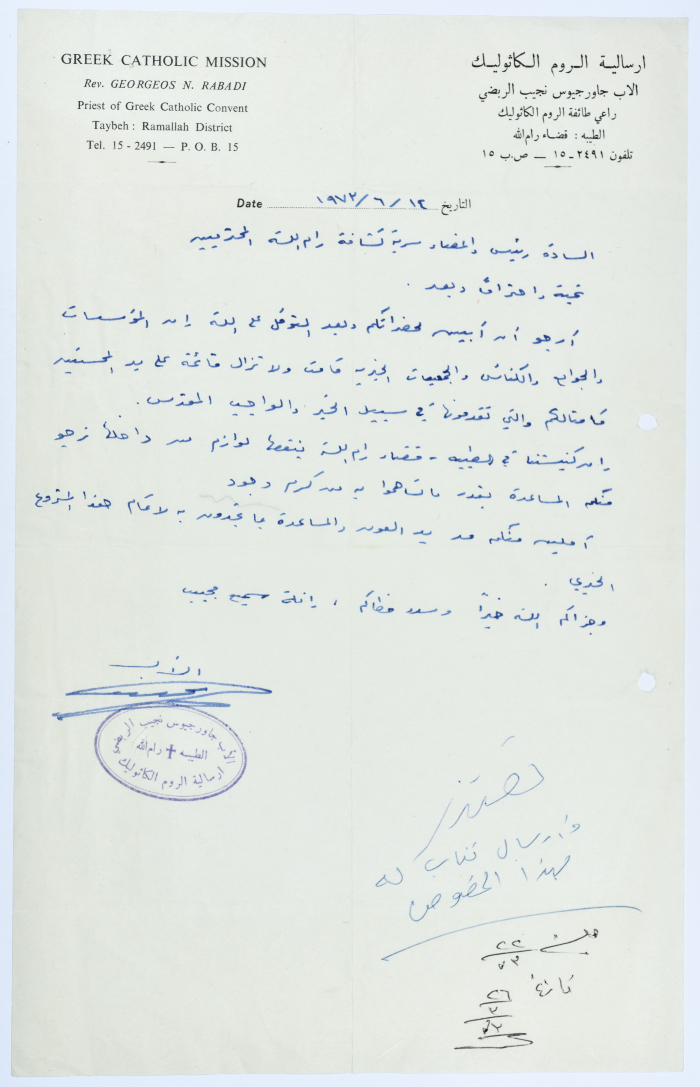 GREEK CATHOLIC MISSION
Rev. GEORGEOS N. RABADI
Priest of Greek Catholic Convent
Taybeh : Ramallah District
Tel. 15 - 2491 — P. O. B. 15
ارسالية الروم الكاثوليك
الاب جاورجيوس نجيب الربضي
راعي طائفة الروم الكاثوليك
الطيبه : قضاء رام الله
تلفون ٢٤٩١ - ١٥ — ص.ب ١٥
Date ١٩٧٣/٦/١٢ التاريخ
السادة رئيس واعضاء سرية كشافة رام الله المحترمين
تحية واحتراماً وبعد .
أرجو أن أبين لحضراتكم وبعد التوكل على الله إن المؤسسات
والجوامع والكنائس والجمعيات الخيرية قامت ولا تزال قائمة على يد المحسنين
أمثالكم والتي تقدمونها في سبيل الخير والواجب المقدس .
إن كنيستنا في الطيبه - قضاء رام الله ينقصها لوازم من داخلها نرجو
منكم المساعدة بقدر ما تساهموا به من كرم وجود
آملين منكم مد يد العون والمساعدة بما تجودون به لاتمام هذا المشروع
الخيري .
وجزاكم الله خيراً وسدد خطاكم ، إنه سميع مجيب
الأب
الأب جاورجيوس نجيب الربضي
الطيبه ✝ رام الله
ارسالية الروم الكاثوليك
نعتذر
وارسال كتاب له
بهذا الخصوص
جلسة ٢٢
٧٣